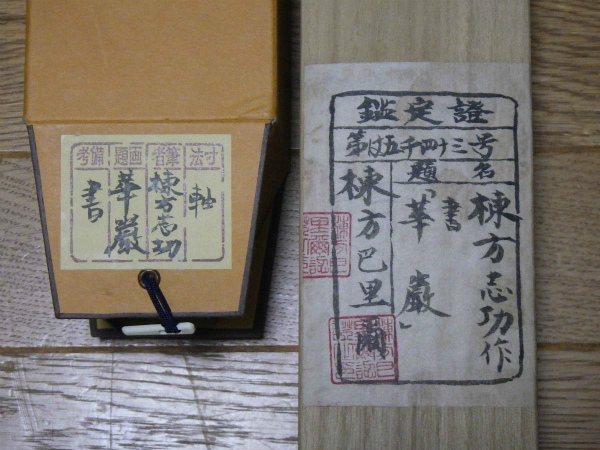 寸法
軸
筆者
棟方志功
画題
華巌
備考
書
鑑定證
第 五千四十三号
題名
棟方志功作
書
「華巌」
棟方巴里爾